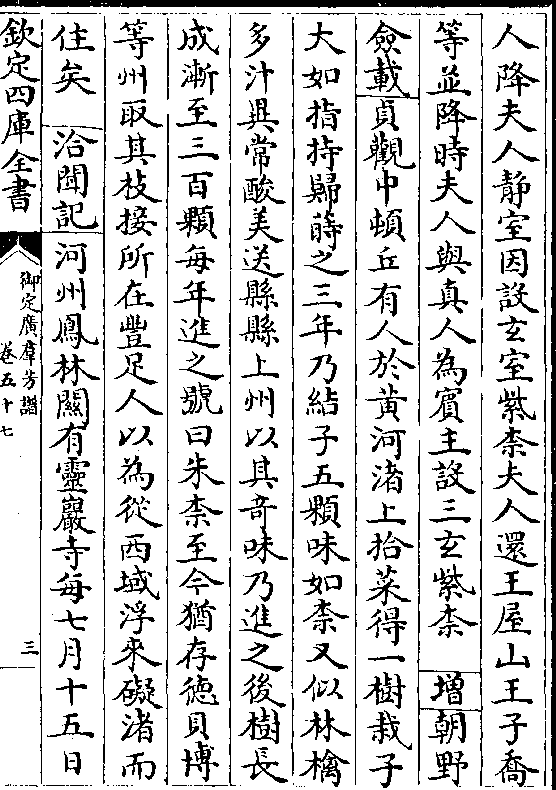 人降夫人静室因設玄室紫柰夫人還王屋山王子喬
等並降時夫人與真人為賔主設三玄紫柰　增朝野
僉載貞觀中頓丘有人於黄河渚上拾菜得一樹栽子
大如指持歸蒔之三年乃結子五顆味如柰又似林檎
多汁異常酸美送縣縣上州以其奇味乃進之後樹長
成漸至三百顆每年進之號曰朱柰至今猶存德貝博
等州取其枝接所在豐足人以為從西域浮來礙渚而
住矣　洽聞記河州鳳林闗有靈巖寺每七月十五日
欽定四庫全書
御定廣羣芳譜
卷五十七
三